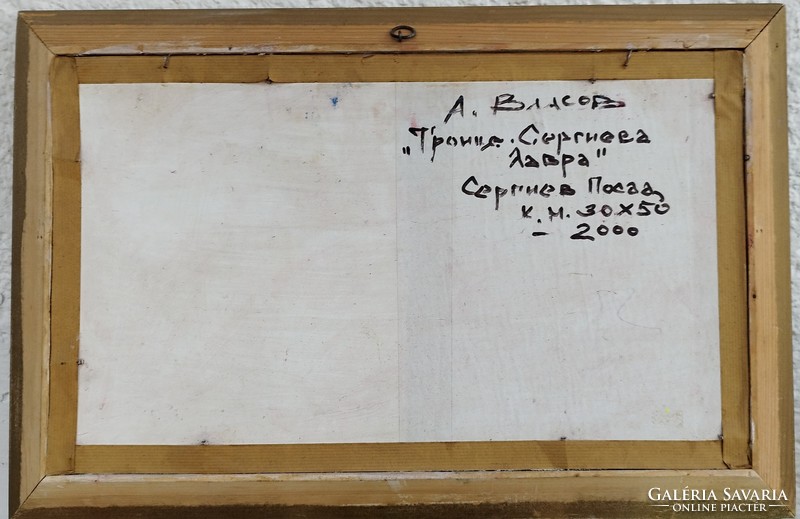 А. Власов
"Троице-Сергиева
Лавра"
Сергиев Посад
к.м. 30х50
- 2000
GALÉRIA SAVARIA
ONLINE PIACTÉR